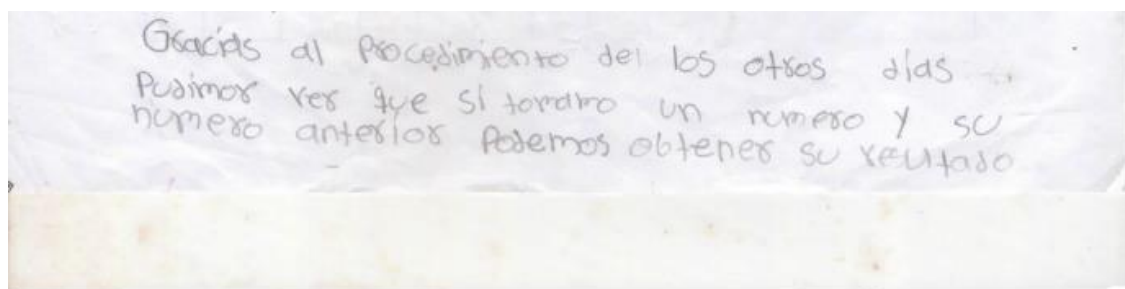 Gracias al Procedimiento del los otros días
Pudimos ver que sí tomamo un numero y su
numero anterior Podemos obtener su reultado